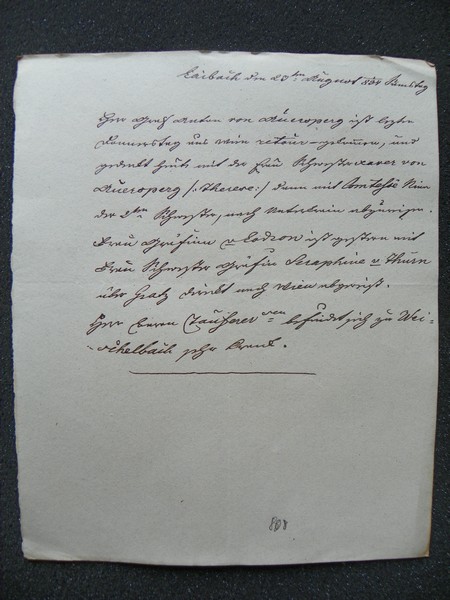 Laibach den 23ten August 851 Samstag
Herr Graf Anton von Auersperg ist letzten
Donnerstag aus Wien retour gekommen, und
gedenkt heute mit der Frau Schwester von
Auersperg /: Therese :/ dann mit Comtesse
der 2ten Schwester, nach abzureisen.
Frau Gräfinn v Lodron ist gestern mit
Frau Schwester Gräfin Seraphine v Thurn
über Gratz direkt nach Wien abgereist.
Herr Baron Taufferer befindet sich zu Wei-
-chelbach sehr krank.
808